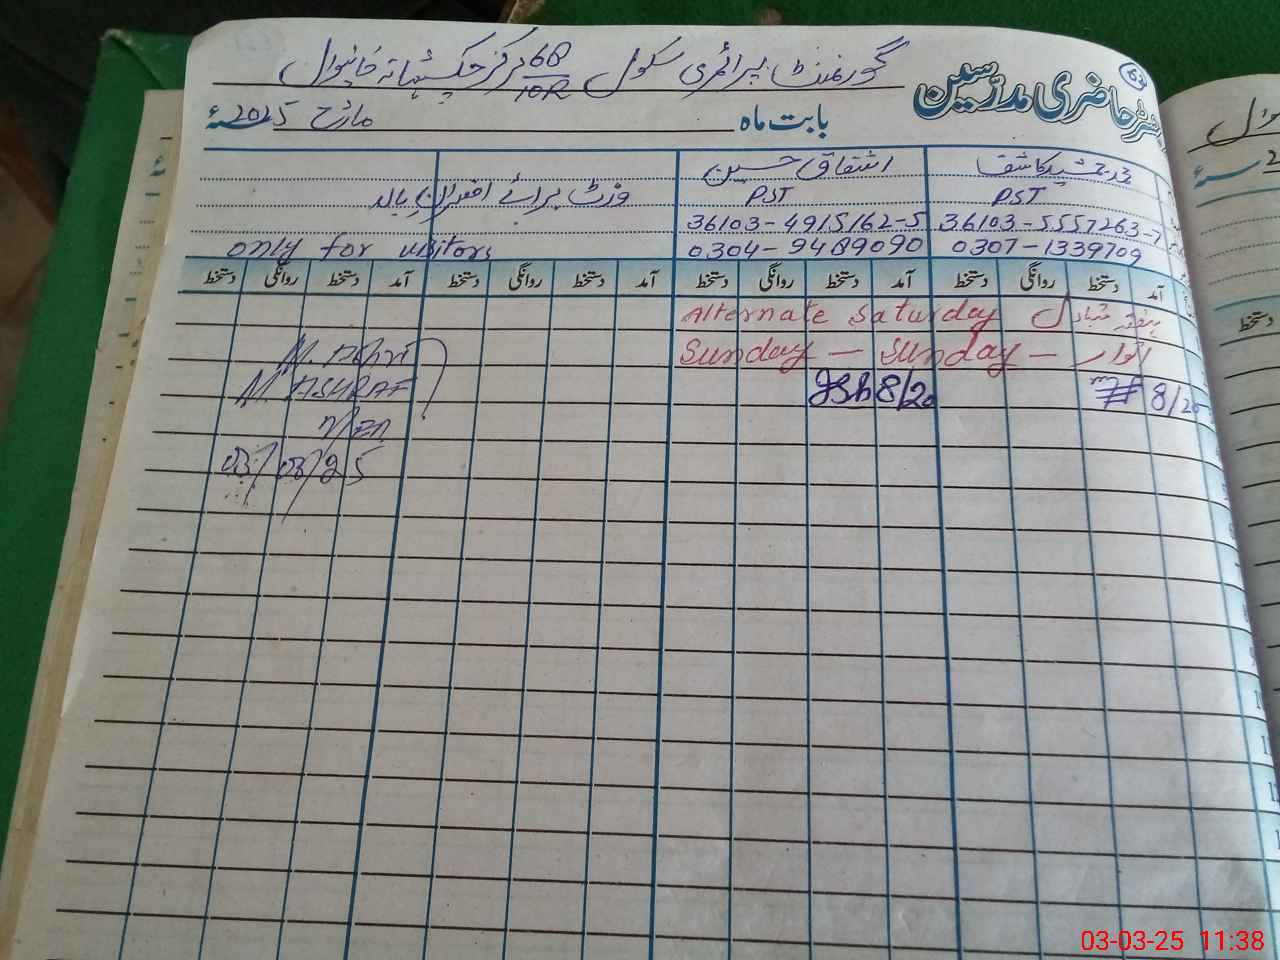 رجسٹر حاضری مدرسین
گورنمنٹ پرائمری سکول 68/10R مرکز چک شہانہ خانیوال
بابت ماہ مارچ 2025ء
جمشید کاشف اشفاق حسین
PST PST وزٹ برائے افسران بالا
36103-4915162-5 36103-5557263-7
only for visitors 0304-9489090 0307-1339709
آمد دستخط روانگی دستخط آمد دستخط روانگی دستخط آمد دستخط روانگی دستخط آمد دستخط روانگی دستخط
Alternate Saturday ہفتہ متبادل
Sunday — Sunday — اتوار
8/20 8/20
M. ASHRAF
03/03/25
دستخط
03-03-25 11:38